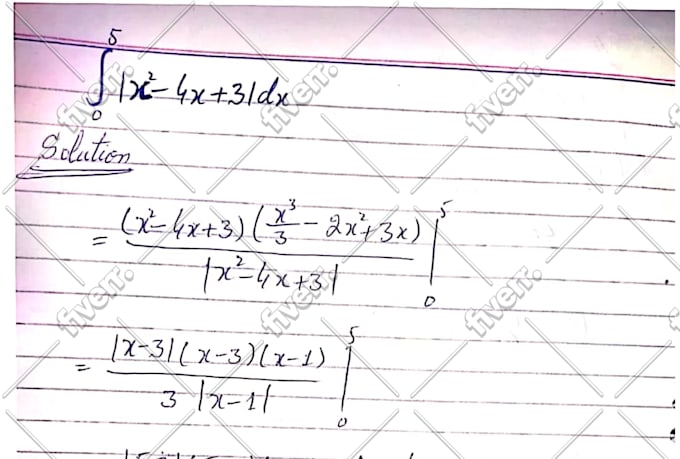 ∫₀⁵ |x²-4x+3|dx
Solution
= (x²-4x+3)(x³/3 - 2x²+3x) / |x²-4x+3| |₀⁵
= |x-3|(x-3)(x-1) / 3 |x-1| |₀⁵
fiverr.
fiverr.
fiverr.
fiverr.
fiverr.
fiverr.
fiverr.
fiverr.
fiverr.